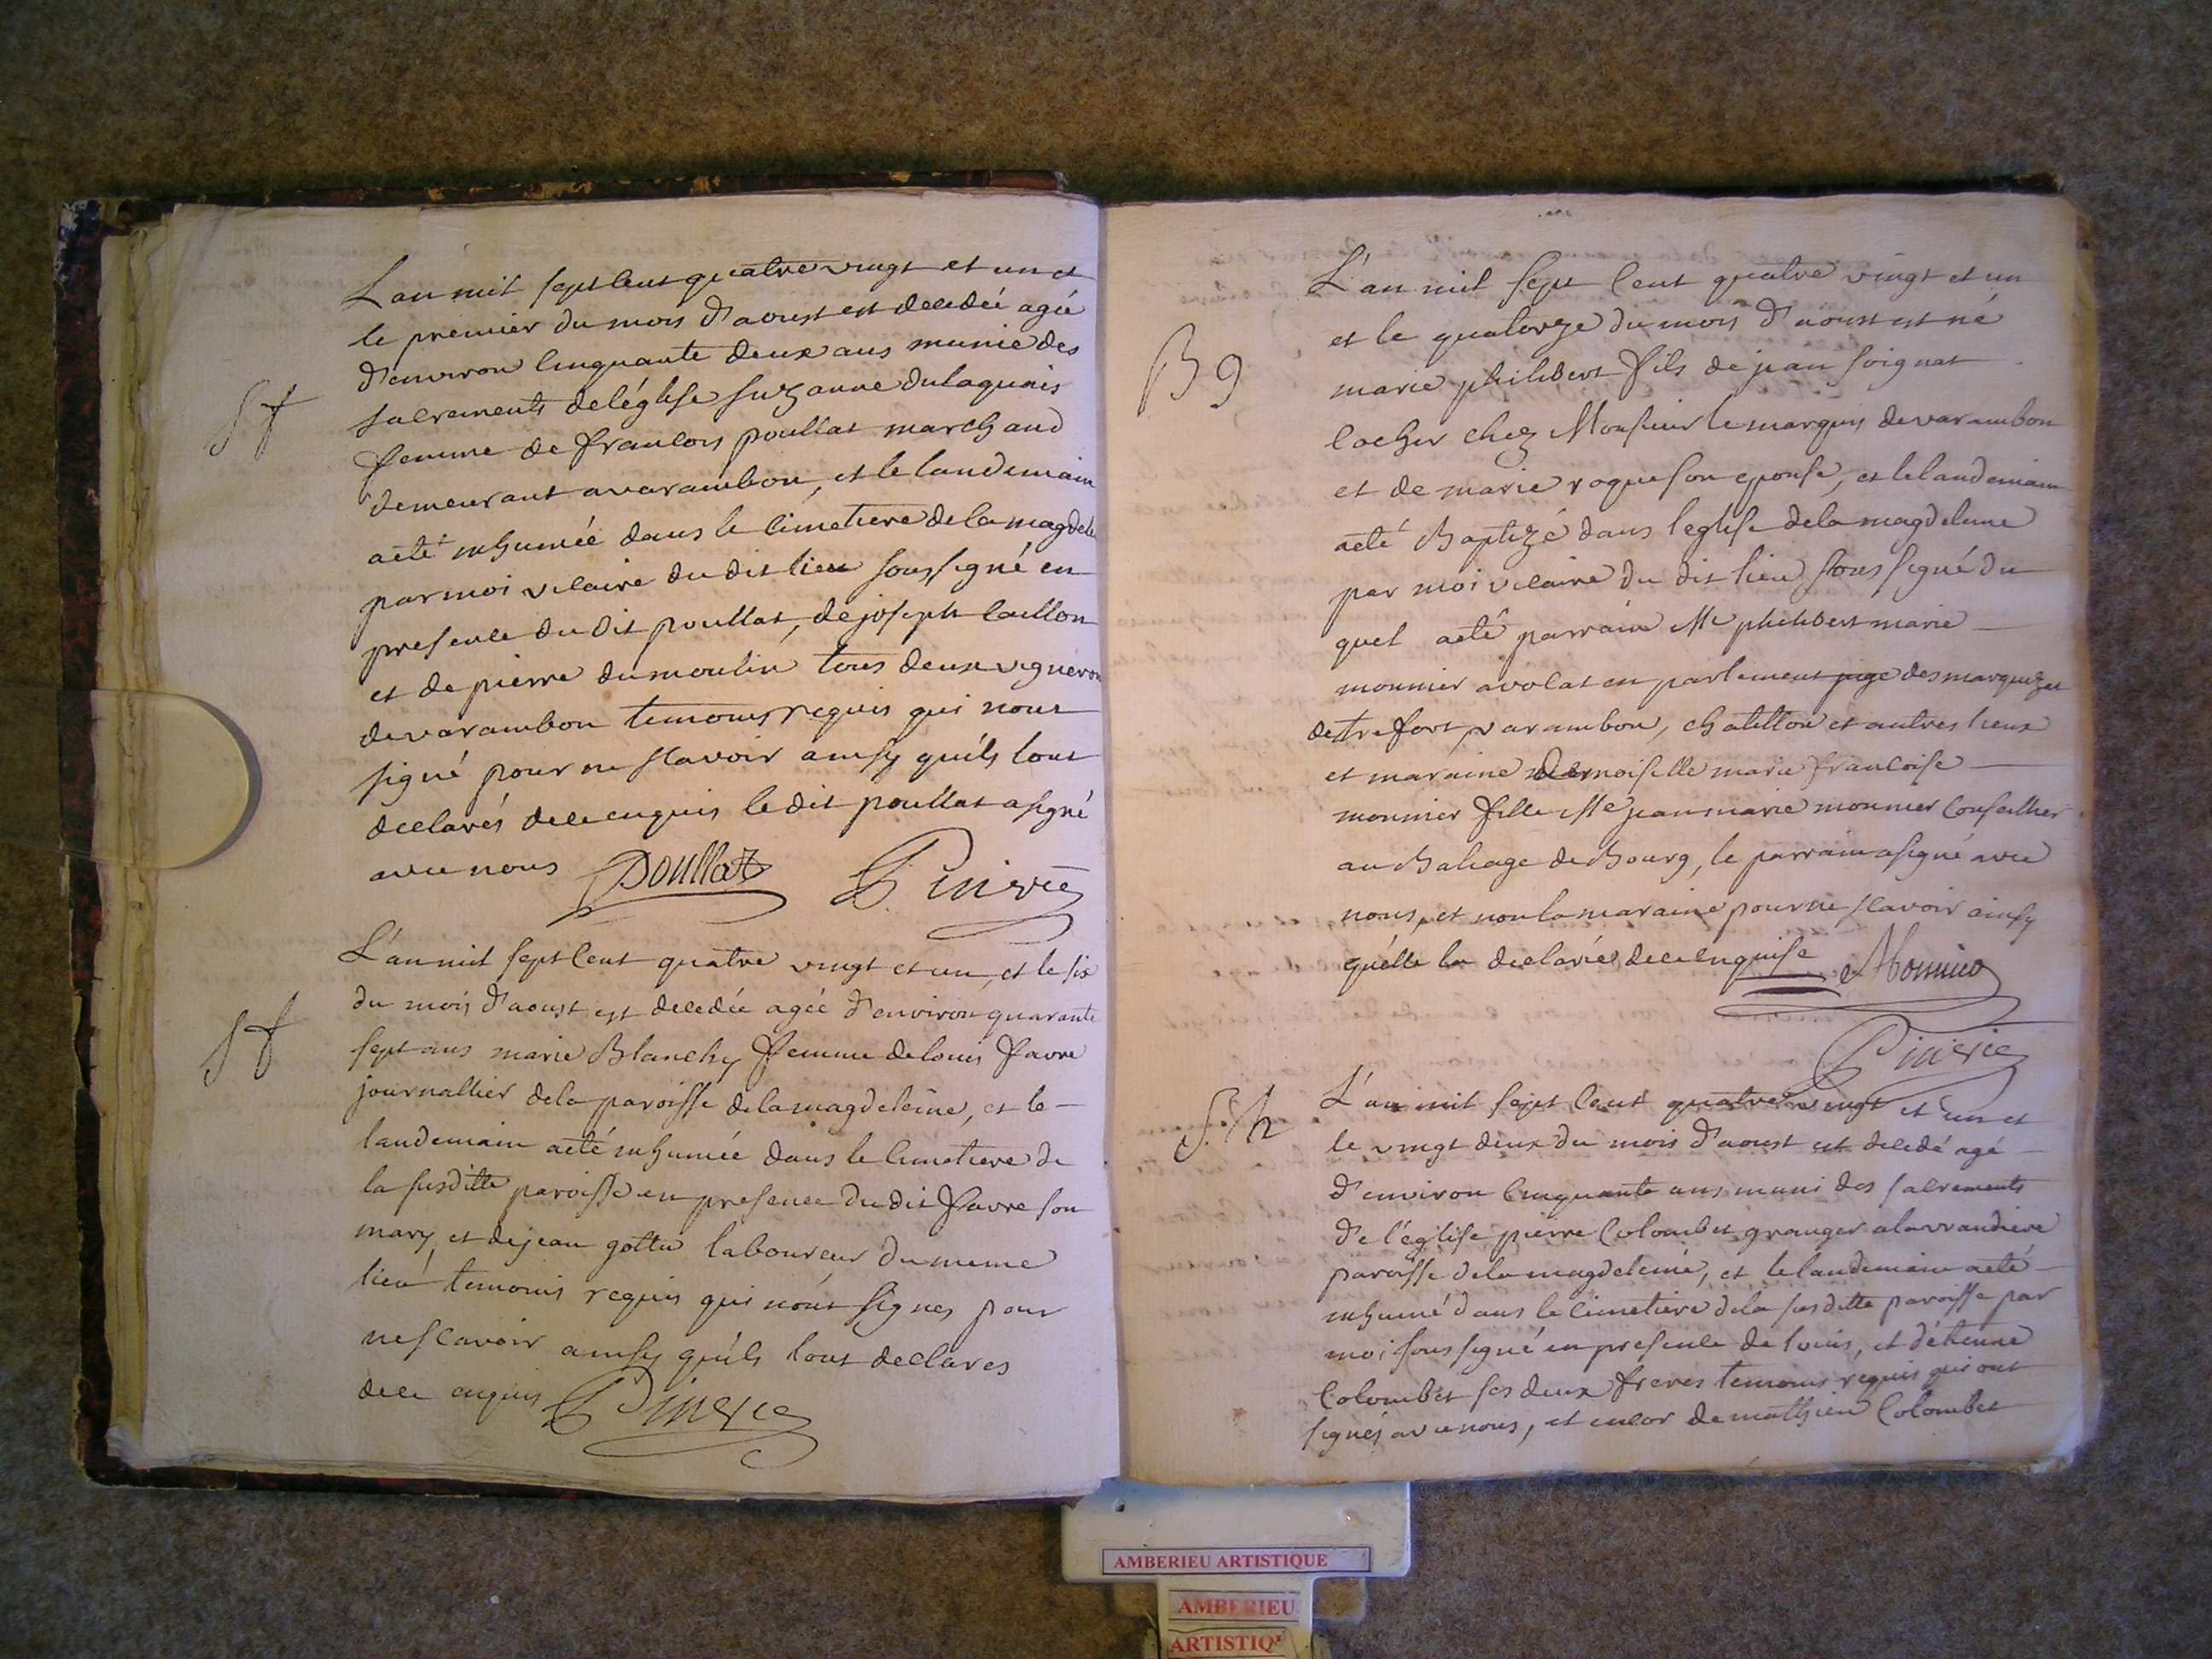 L'an mil sept cent quatre vingt et un et
le premier du mois d'aoust est decedée agée
d'environ cinquante deux ans munie des
sacrements de l'églisse suzanne dulaquais
femme de francois poullat marchand
demeurant a varambon, et le landemain
a eté inhumée dans le cimetiere de la magdele
par moi vicaire du dit lieu soussigné en
presence du dit poullat, de joseph caillon
et de pierre dumoulin tous deux vigneron
de varambon temoins requis qui n'ont
signé pour ne scavoir ainsy qu'ils l'ont
declarés de ce enquis le dit poullat a signé
avec nous Poullat
Sf
L'an mil sept cent quatre vingt et un, et le six
du mois d'aoust est decedée agée d'environ quarante
sept ans marie Blanchy femme de louis favre
journallier de la paroisse de la magdeleine, et le
landemain a eté inhumée dans le cimetiere de
la susditte paroisse en presence du dit favre son
mary, et de jean gottu laboureur du meme
lieu temoins requis qui n'ont signes pour
ne scavoir ainsy qu'ils l'ont declares
de ce enquis
Sf
L'an mil sept cent quatre vingt et un
et le quatorze du mois d'aoust est né
marie philibert fils de jean soignat
cocher chez Monsieur le marquis de varambon
et de marie roque son epouse, et le landemain
a eté Baptizé dans l'eglise de la magdelene
par moi vicaire du dit lieu sous signé du
quel a eté parrain Me philibert marie
monnier avocat en parlement juge des marquizat
de trefort, varambon, chatillon et autres lieux
et maraine demoiselle marie francoise
monnier fille Me jean marie monnier conseillier
au Baliage de Bourg, le parrain a signé avec
nous, et non la maraine pour ne scavoir ainsy
qu'elle l'a declarée de ce enquise Monnier
B 9
L'an mil sept cent quatre vingt et un et
le vingt deux du mois d'aoust est decedé agé
d'environ cinquante ans muni des sacrements
de l'église pierre Colombet granger a la
paroisse de la magdeleine, et le landemain a eté
inhumé dans le cimetiere de la susditte paroisse par
moi soussigné en presence de louis, et d'etienne
Colombet ses deux freres temoins requis qui ont
signés avec nous, et encor de mathieu Colombet
S. h
AMBERIEU ARTISTIQUE
AMBERIEU
ARTISTIQ